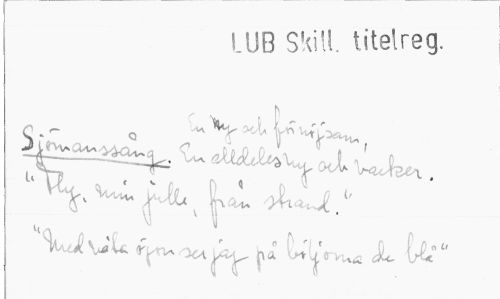 LUB Skill. titelreg.
En ny och förnöjsam,
Sjömanssång. En alldeles ny och vacker.
"Fly, min julle, från strand."
"Med våta ögon ser jag på böljorna de blå"